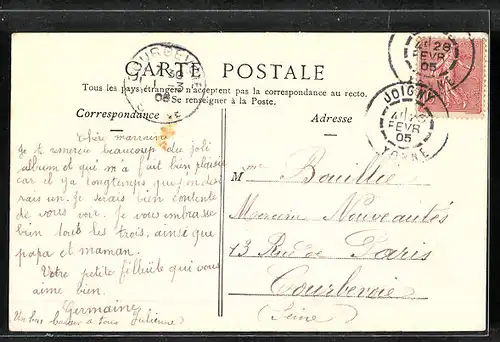 CARTE POSTALE
Tous les pays étrangers n'acceptent pas la correspondance au recto.
Se renseigner à la Poste.
Correspondance
Adresse
Chère marraine
Je te remercie beaucoup du joli
album et qui m'a fait bien plaisir
car il ya longtemps que j'en dé
rais un. Je serais bien contente
de vous voir. Je vous embrasse
bien tous les trois, ainsi que
papa et maman.
Votre petite filleule qui vous
aime bien.
Germaine
Un bon baiser à tous Julienne
Mme Bouillie
Mercerie Nouveautés
13 Rue de Paris
Courbevoie
(Seine)
COURBEVOIE
05
28
FEVR
05
JOIGNY
FEVR
05
YONNE